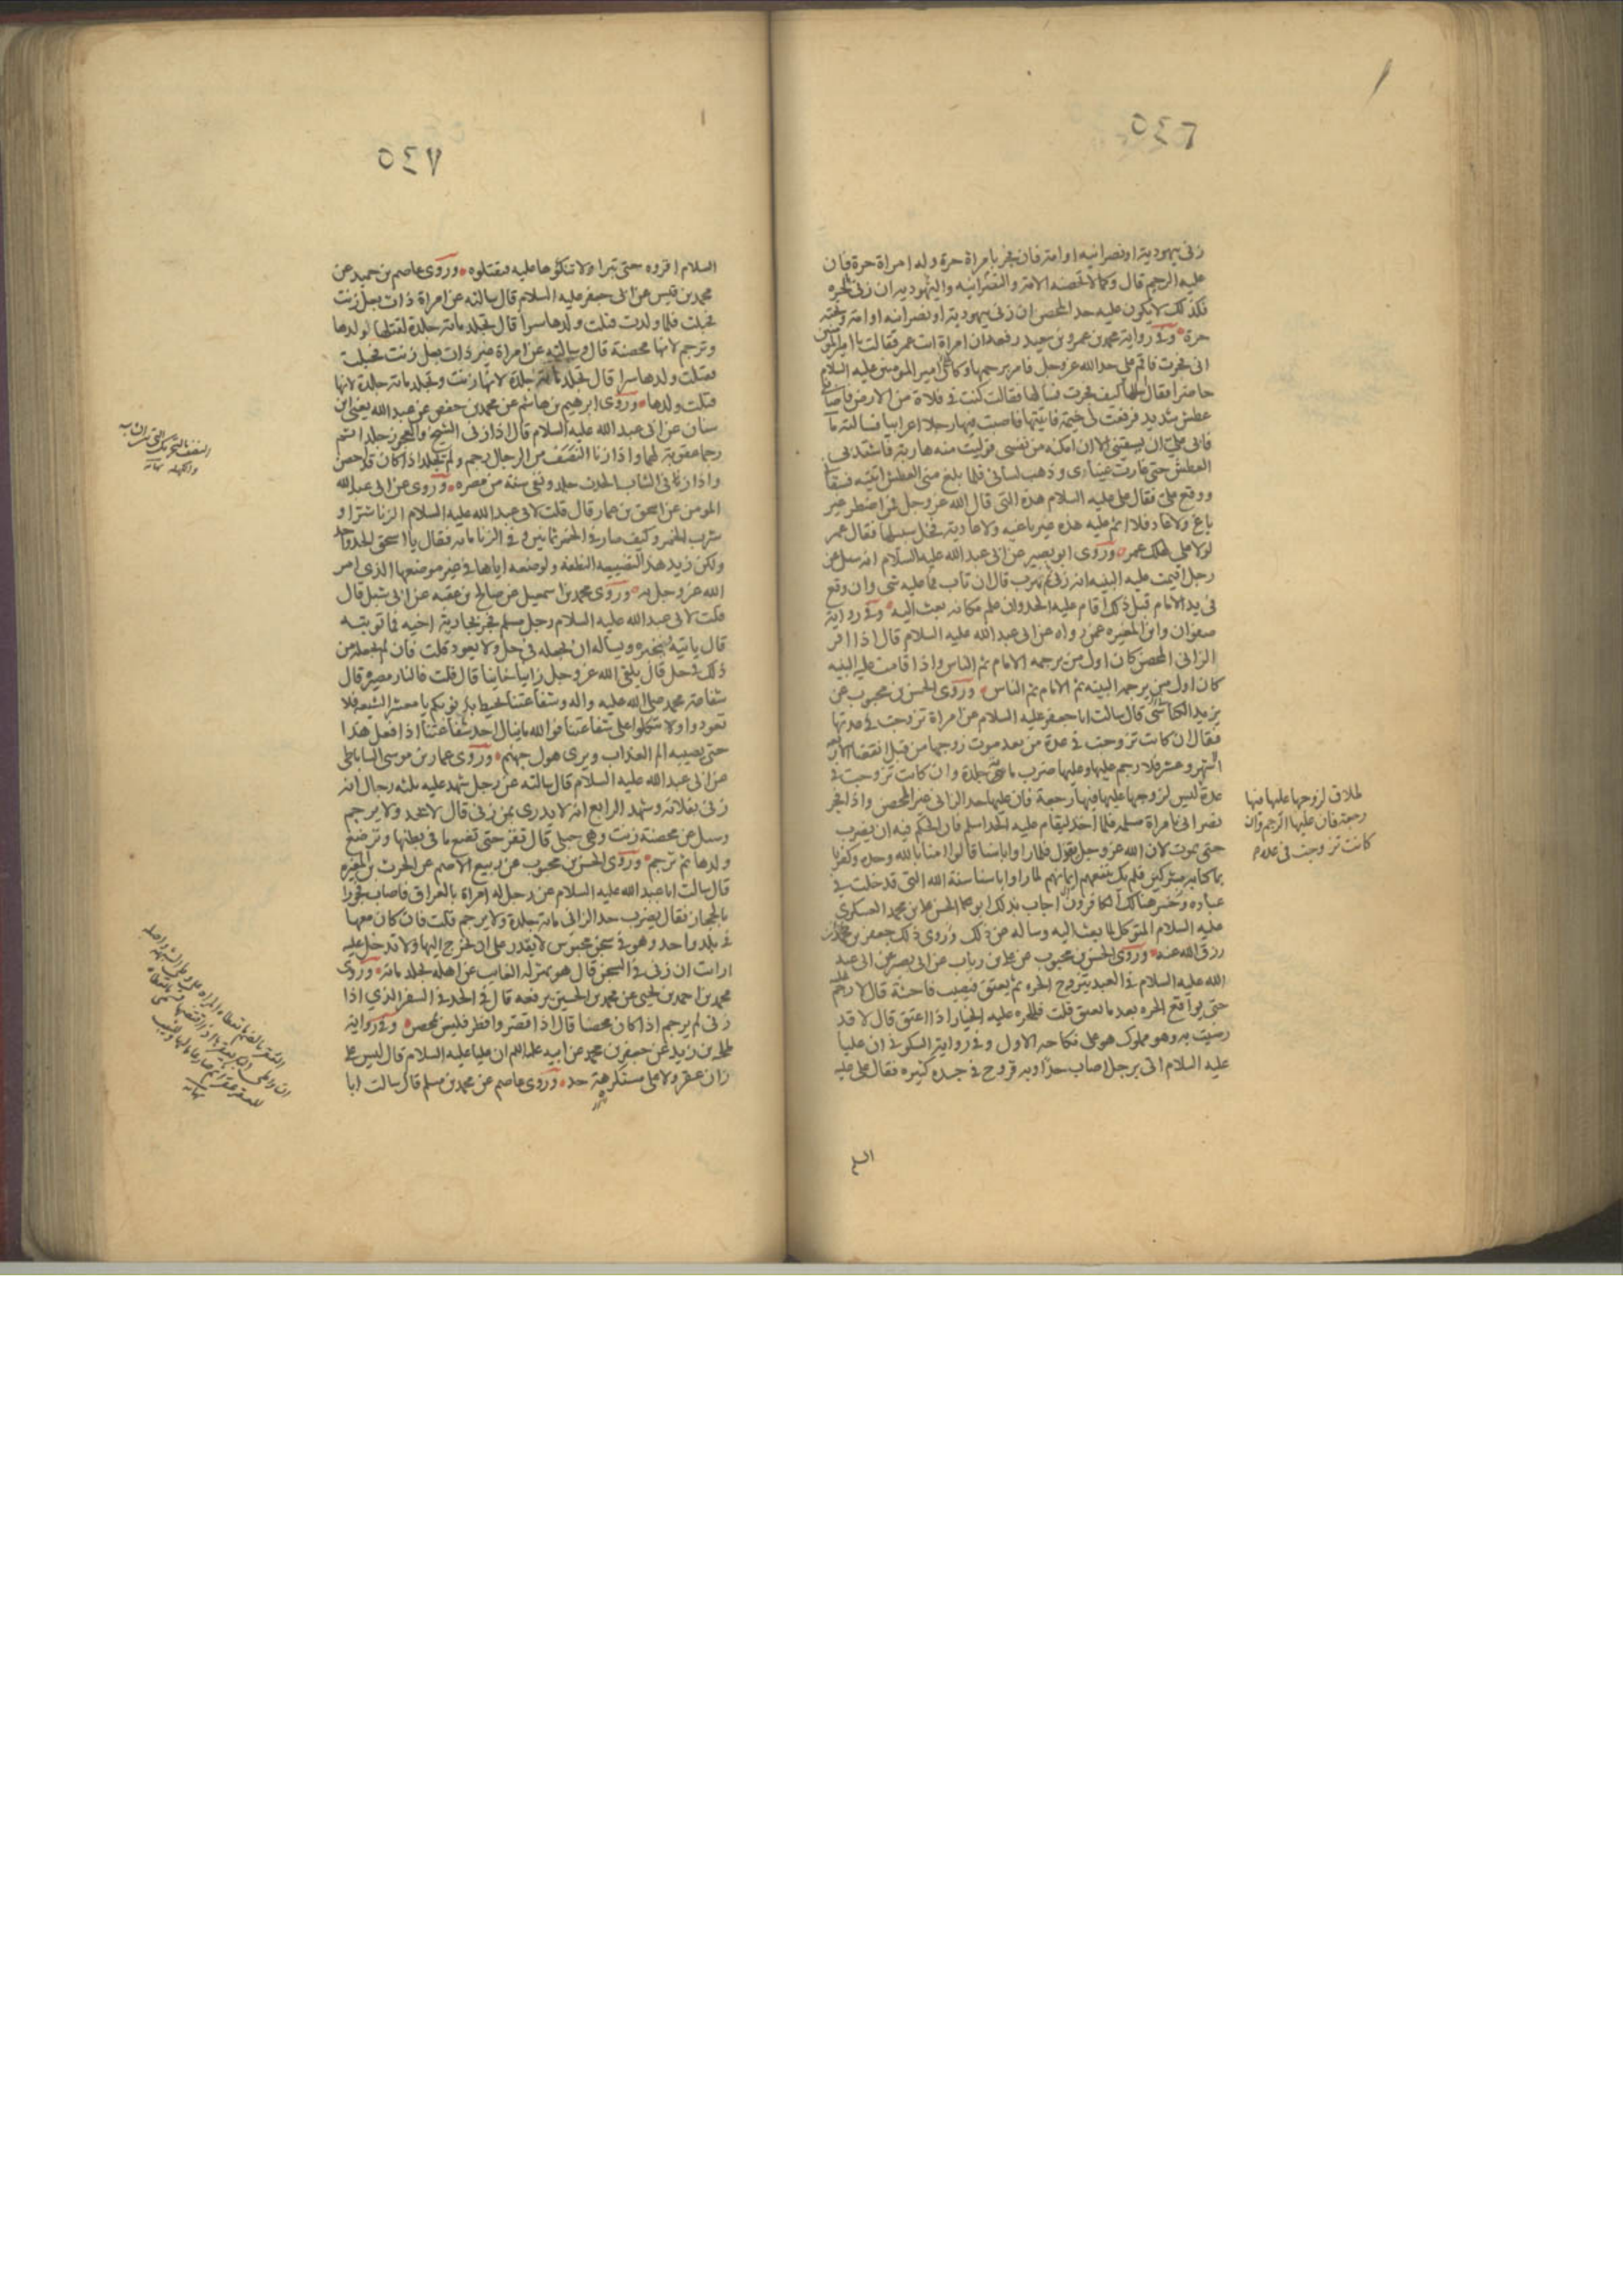 ٥٤٦
زنى بيهودية او نصرانية او امة فان فجر بامراة حرة وله امراة حرة فان
عليه الرجم قال وكما لا تحصنه الامة والنصرانيه واليهوديه ان زنى بحرة
فكذلك لا يكون عليه حد المحصن ان زنى بيهودية او نصرانيه او امة وتحته
حرة وفى رواية محمد بن عمرو بن سعيد رفعه ان امراة اتت عمر فقالت يا امير المؤمنين
انى فجرت فاقم على حد الله عز وجل فامر برجمها وكان على امير المومنين عليه السلام
حاضرا فقال سلها كيف فجرت فسالها فقالت كنت فى فلاة من الارض فاصابنى
عطش شديد فرفعت لى خيمة فاتيتها فاصبت فيها رجلا اعرابيا فسالته ما
فابى على ان يسقينى الا ان امكنه من نفسى فوليت منه هاربة فاشتد بى
العطش حتى غارت عيناى وذهب لسانى فلما بلغ منى العطش اتيته فسقانى
ووقع على فقال على عليه السلام هذه التى قال الله عز وجل فمن اضطر غير
باغ ولا عاد فلا اثم عليه هذه غير باغيه ولا عادية فخل سبيلها فقال عمر
لولا على لهلك عمر وروى ابو بصير عن ابى عبد الله عليه السلام انه سئل عن
رجل اقيمت عليه البينه انه زنى ثم هرب قال ان تاب فما عليه شى وان وقع
فى يد الامام قبل ذلك اقام عليه الحد وان علم مكانه بعث اليه وفى رواية
صفوان وابن المغيره عمن رواه عن ابى عبد الله عليه السلام قال اذا اقر
الزانى المحصن كان اول من يرجمه الامام ثم الناس واذا قامت عليه البينه
كان اول من يرجمه البينه ثم الامام ثم الناس وروى الحسن بن محبوب عن
يزيد الكناسى قال سالت ابا جعفر عليه السلام عن امراة تزوجت فى عدتها
فقال ان كانت تزوجت فى عدة من بعد موت زوجها من قبل انقضا الاربعه
اشهر وعشر فلا رجم عليها وعليها ضرب مائة جلدة وان كانت تزوجت فى
عدة ليس لزوجها عليها فيها رجعة فان عليها حد الزانى غير المحصن واذا فجر
نصرانى بامراة مسلمه فلما اخذ ليقام عليه الحد اسلم فان الحكم فيه ان يضرب
حتى يموت لان الله عز وجل يقول فلما راوا باسنا قالوا امنا بالله وحده وكفرنا
بما كنا به مشركين فلم يك ينفعهم ايمانهم لما راوا باسنا سنة الله التى قد خلت فى
عباده وخسر هنالك الكافرون اجاب بذلك ابو الحسن على بن محمد العسكرى
عليه السلام المتوكل لما بعث اليه وساله عن ذلك وروى ذلك جعفر بن
رزق الله عنه وروى الحسن بن محبوب عن على بن رياب عن ابى بصير عن ابى عبد
الله عليه السلام فى العبد يتزوج الحره ثم يعتق فيصيب فاحشة قال لا رجم عليه
حتى يواقع الحره بعد ما يعتق قلت فللحره عليه الخيار اذا اعتق قال لا قد
رضيت به وهو مملوك هو على نكاحه الاول وفى رواية السكونى ان عليا
عليه السلام اتى برجل اصاب حدا وبه قروح فى جسده كثيره فقال على عليه
السلم
لطلاق لزوجها عليها فيها
رجعة فان عليها الرجم وان
كانت تزوجت فى عده
٥٤٧
السلام اقروه حتى تبرا ولا تنكؤها عليه فتقتلوه وروى عاصم بن حميد عن
محمد بن قيس عن ابى جعفر عليه السلام قال سالته عن امراة ذات بعل زنت
فحبلت فلما ولدت قتلت ولدها سرا قال تجلد مائة جلدة لقتلها ولدها
وترجم لانها محصنة قال وسالته عن امراة غير ذات بعل زنت فحبلت
فقتلت ولدها سرا قال تجلد مائة جلدة لانها زنت وتجلد مائة جلدة لانها
قتلت ولدها وروى ابرهيم بن هاشم عن محمد بن حفص عن عبد الله يعنى ابن
سنان عن ابى عبد الله عليه السلام قال اذا زنى الشيخ والعجوز جلدا ثم
رجما عقوبة لهما واذا زنا النصف من الرجال رجم ولم يجلد اذا كان قد احصن
واذا زنى الشاب الحدث جلد ونفى سنة من مصره وروى عن ابى عبد الله
المومن عن اسحق بن عمار قال قلت لابى عبد الله عليه السلام الزنا شر او
شرب الخمر وكيف صار فى الخمر ثمانين وفى الزنا مائه فقال يا اسحق الحد واحد
ولكن زيد هذا لتضييعه النطفه ولوضعه اياها فى غير موضعها الذى امر
الله عز وجل به وروى محمد بن اسمعيل عن صالح بن عقبه عن ابى شبل قال
قلت لابى عبد الله عليه السلام رجل مسلم فجر بجارية اخيه فما توبته
قال ياتيه فيخبره ويساله ان يجعله فى حل ولا يعود قلت فان لم يجعله من
ذلك فى حل قال يلقى الله عز وجل زانيا خاينا قال قلت فالنار مصيره قال
شفاعة محمد صلى الله عليه واله وشفاعتنا تحيط بذنوبكم يا معشر الشيعه فلا
تعودوا ولا تتكلوا على شفاعتنا فوالله ما ينال احد شفاعتنا اذا فعل هذا
حتى يصيبه الم العذاب ويرى هول جهنم وروى عمار بن موسى الساباطى
عن ابى عبد الله عليه السلام قال سالته عن رجل شهد عليه ثلثه رجال انه
زنى بفلانه وشهد الرابع انه لا يدرى بمن زنى قال لا يحد ولا يرجم
وسئل عن محصنة زنت وهى حبلى قال تقر حتى تضع ما فى بطنها وترضع
ولدها ثم ترجم وروى الحسن بن محبوب عن ربيع الاصم عن الحرث بن المغيره
قال سالت ابا عبد الله عليه السلام عن رجل له امراة بالعراق فاصاب فجورا
بالحجاز فقال يضرب حد الزانى مائة جلدة ولا يرجم قلت فان كان معها
فى بلد واحد وهو فى سجن محبوس لا يقدر على ان يخرج اليها ولا تدخل عليه
ارايت ان زنى فى السجن قال هو بمنزله الغايب عن اهله يجلد مائة وروى
محمد بن احمد بن يحيى عن محمد بن الحسين يرفعه قال فى الحد فى السفر الذي اذا
زنى لم يرجم اذا كان محصنا قال اذا قصر وافطر فليس بمحصن وفى رواية
طلحه بن زيد عن جعفر بن محمد عن ابيه عليهما السلم ان عليا عليه السلام قال ليس على
زان عقر ولا على مستكرهة حد وروى عاصم عن محمد بن مسلم قال سالت ابا
النصف بالتحريك